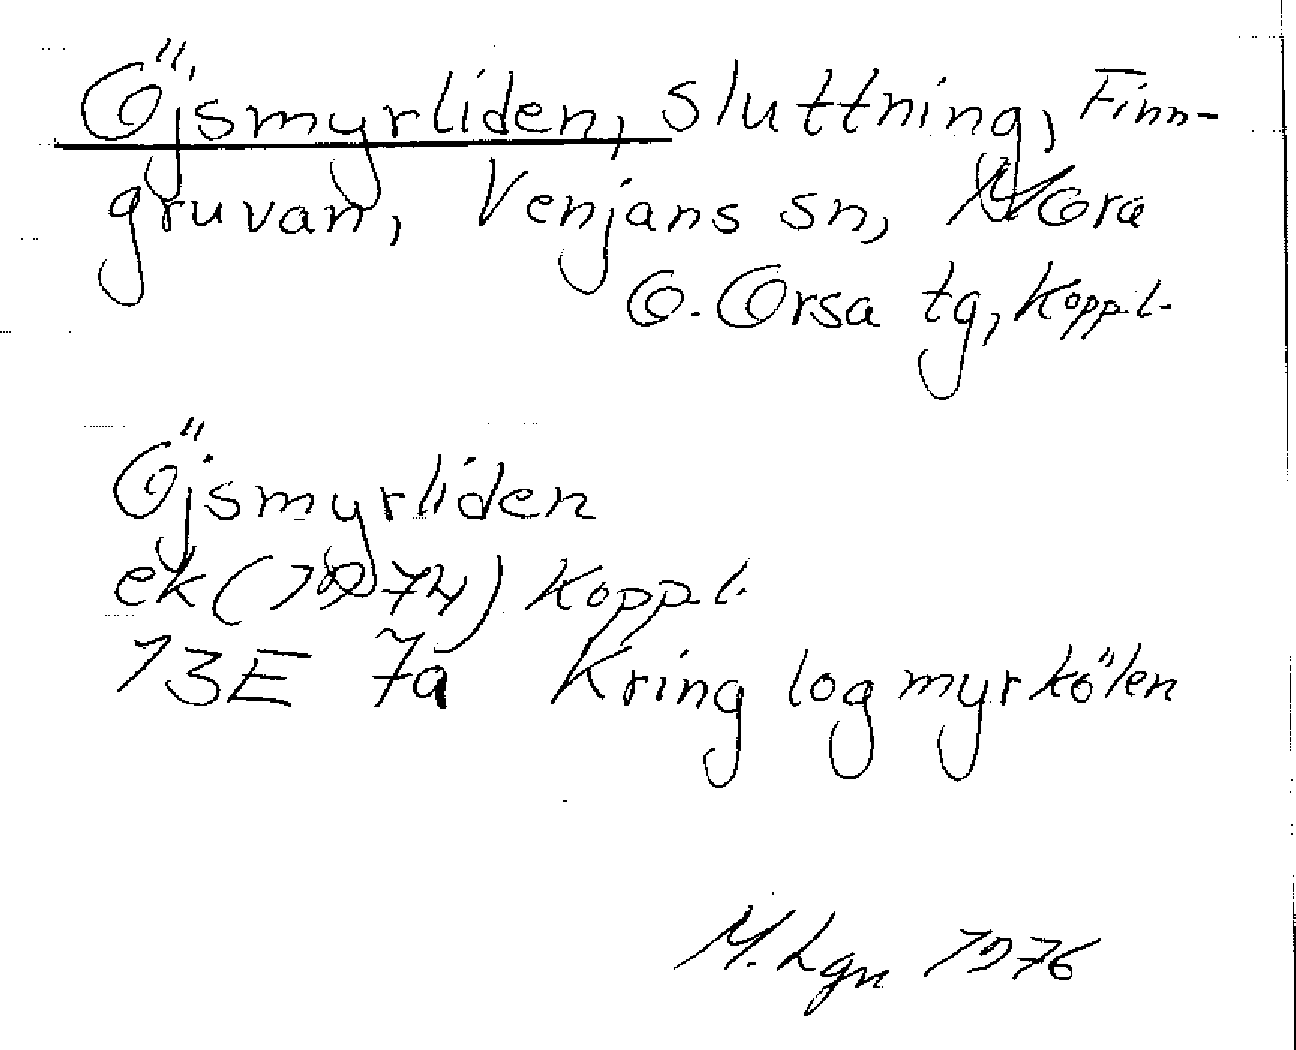 Öjsmyrliden, sluttning, Finn-
gruvan, Venjans sn, Mora
o. Orsa tg, Koppl.
Öjsmyrliden
ek (1974) Koppl.
13E 7a Kring logmyrkölen
M. Lgn 1976